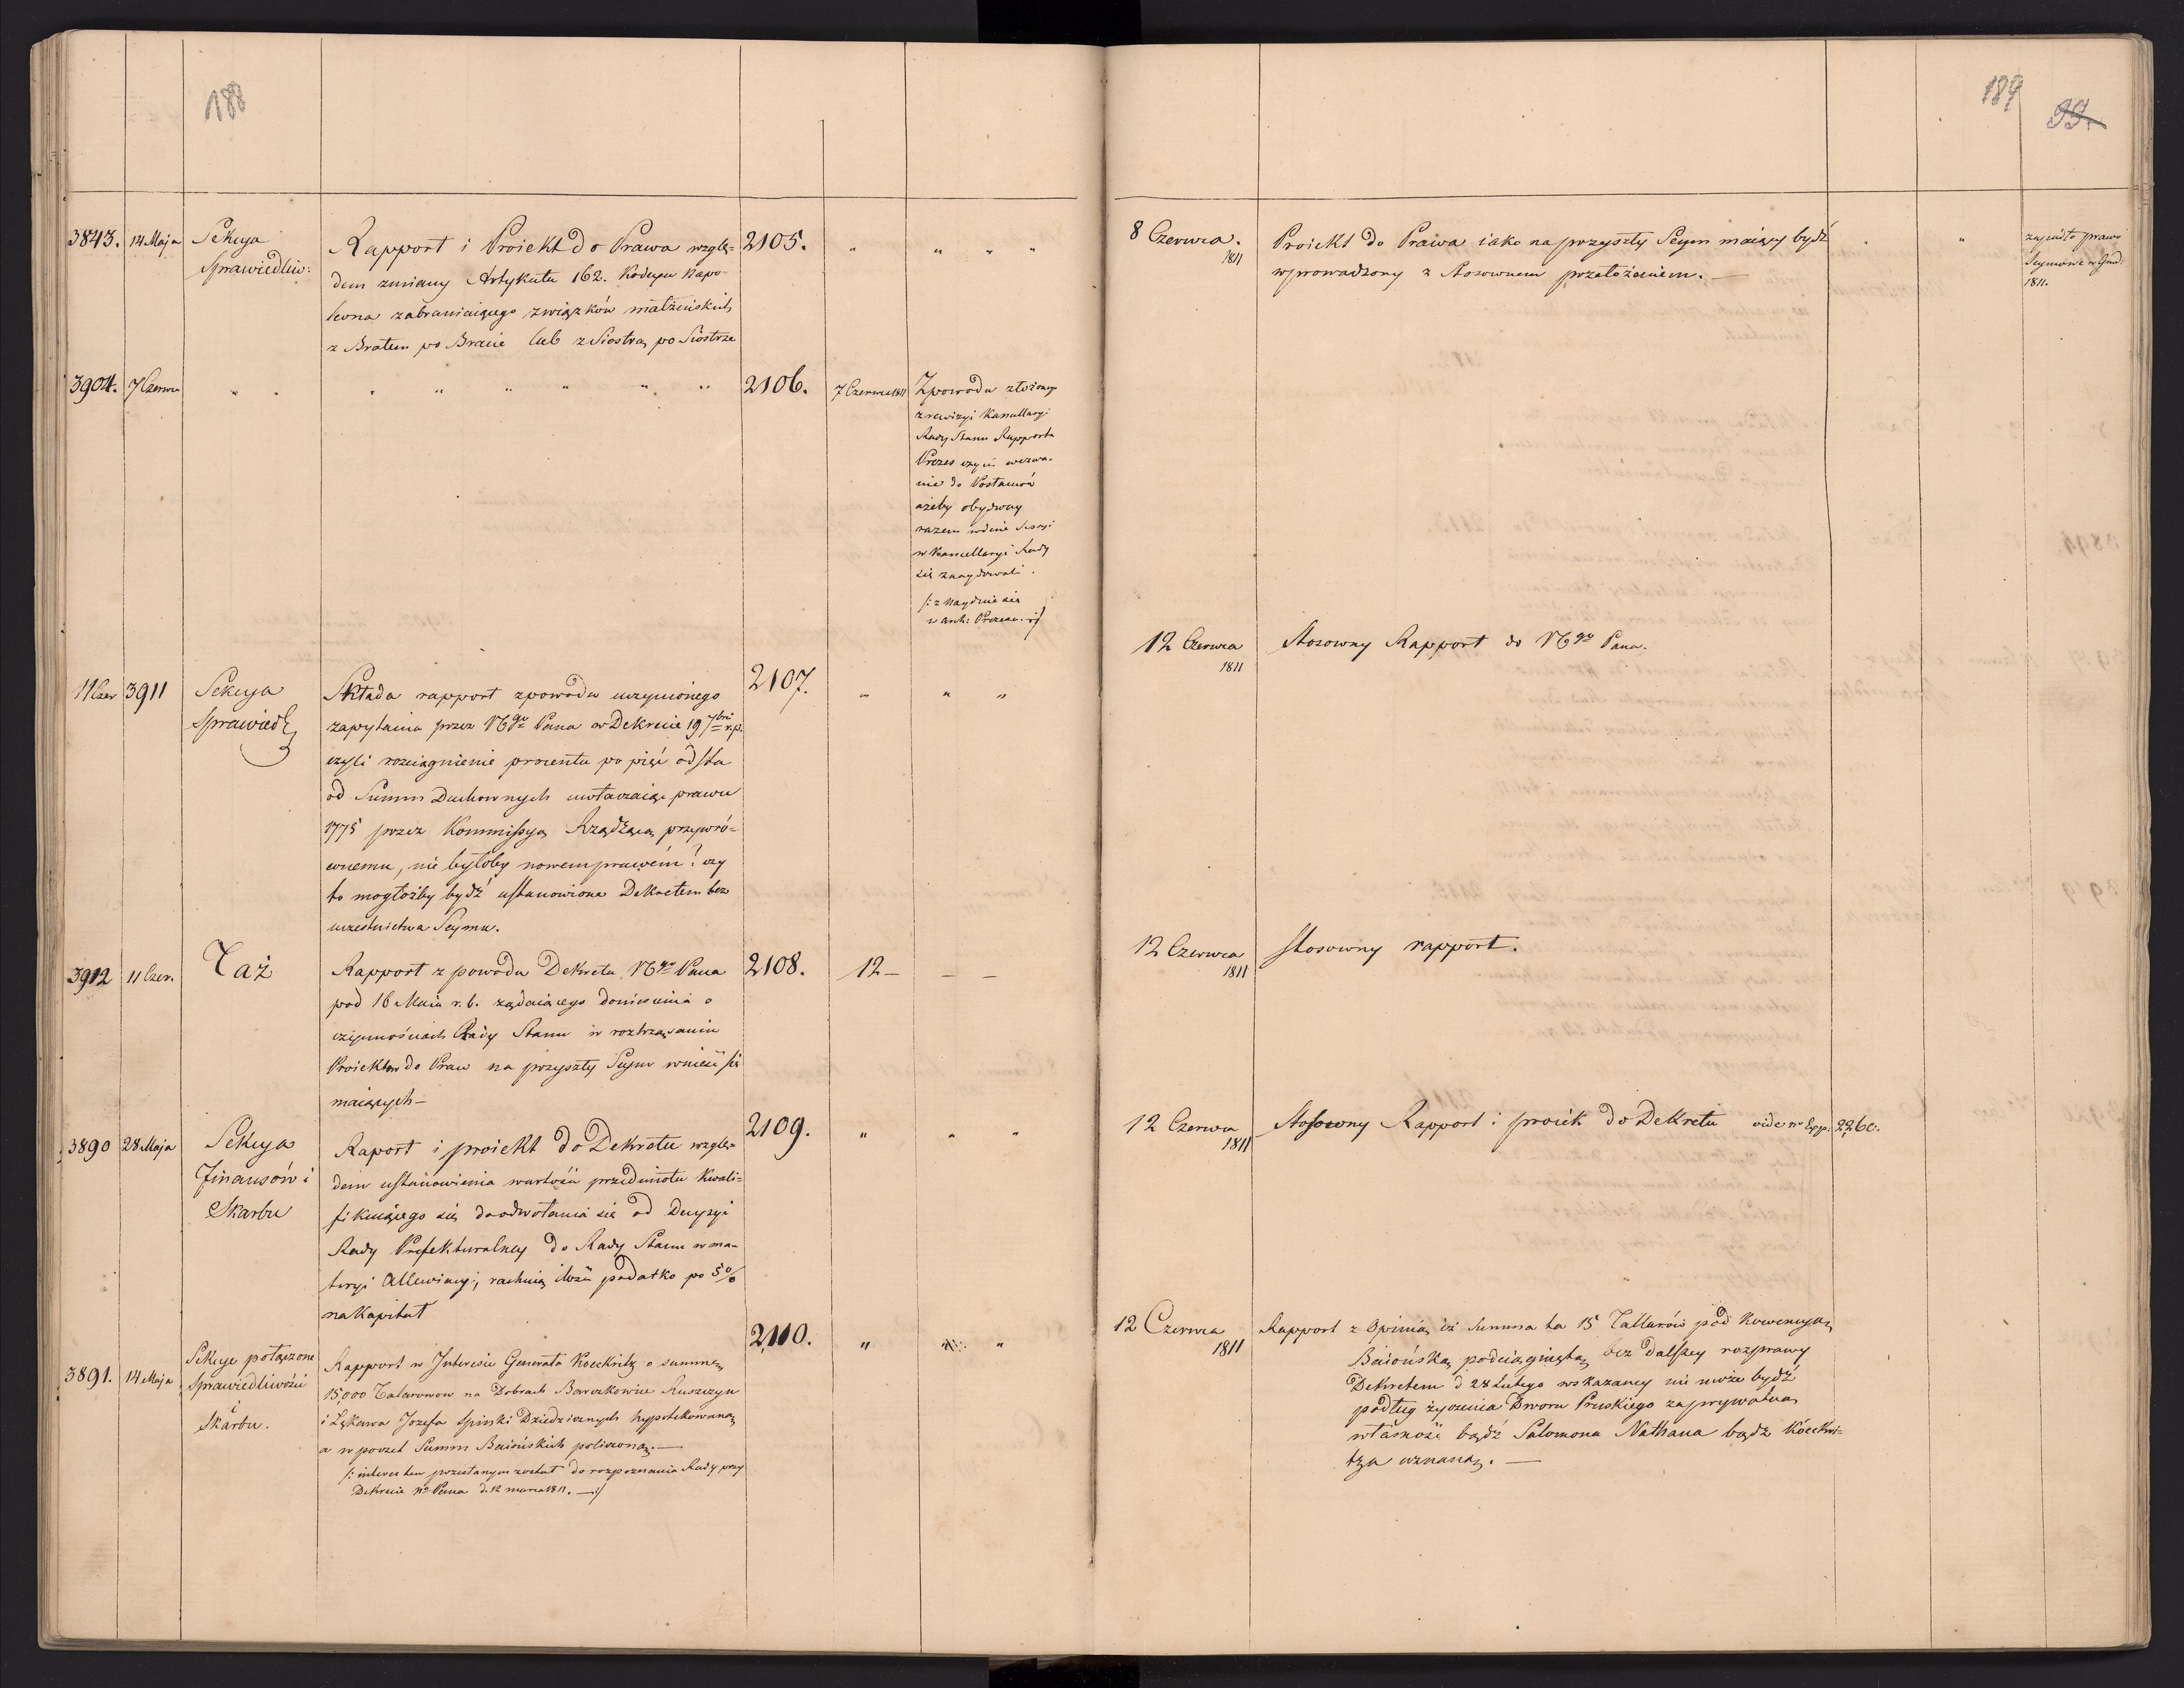 188
3843. 14 Maja Sekcya Rapport i Proiekt do Prawa wzglę= 2105. " " " "
Sprawiedliw: dem zmiany Artykułu 162. Kodexu Napo-
leona zabraniaiącego związków małżeńskich
z Bratem po Bracie lub z Siostrą po Siostrze
3904. 7 Czerwca " " " " " " " " 2106. 7 Czerwca 1811 Z powodu złożonego
z rewizyi Kancellaryi
Rady Stanu Rapportu
Prezes czyni wezwa-
nie do
ażeby obydway
razem w dnie Sessyi
w Kancellaryi Rady
się znaydowali.
/: znayduie się
w Prezesa :/
11 Czer 3911 Sekcya Składa rapport z powodu uczynionego 2107. " " "
Sprawiedl zapytania przez NGo Pana w Dekrecie 19 7bra r.p.
czyli rozciągnienie procentu po pięć od sta
od Summ Duchownych uwłaczaiące prawu
1775 przez Kommissyą Rządzącą przywró-
conemu, nie byłoby nowem prawem? czy
to mogłożby bydź ustanowione Dekretem bez
uczestnictwa Seymu.
3912 11 Czer. Taż Rapport z powodu Dekretu NGo Pana 2108. 12 — — —
pod 16 Maia r. b. żądaiącego doniesienia o
czynnościach Rady Stanu w roztrząsaniu
Proiektów do Praw na przyszły Seym wnieść się
maiących —
3890 28 Maja Sekcya Raport i proiekt do Dekretu wzglę= 2109. " " "
Finansów i dem ustanowienia wartości przedmiotu kwali=
Skarbu fikuiącego się do odwołania się od Decyzyi
Rady Prefekturalney do Rady Stanu w ma-
teryi rachuiąc ilość podatko po 5%
na Kapitał
3891. 14 Maja Sekcye połączone Rapport w Interesie Generała Koeckritz o summę 2110. " " "
Sprawiedliwości 15,000 Talarowow na Dobrach Barczkowice Ruszczyn
i i Łękawa Jozefa Lipinski Dziedzicznych hypotekowaną
Skarbu. a w poczet Summ Baiońskich policzoną. —
/: interes ten przesłanym został do rozpoznania Rady przy
Dekrecie No Pana d. 12 marca 1811. — :/
189
99.
8 Czerwca. 1811 Proiekt do Prawa iako na przyszły Seym maiący bydź " zapadło prawo
wprowadzony z stosownem przełożeniem. — Seymowe w Grud:
1811.
12 Czerwca 1811 Stosowny Rapport do NGo Pana.
12 Czerwca 1811 Stosowny rapport.
12 Czerwca 1811 Stosowny Rapport i proiek do Dekretu vide n Exp: 2260.
12 Czerwca 1811 Rapport z Opinią iż Summa ta 15 Tallarów pod Kowencyą
Baiońską podciągniętą bez dalszey rozprawy
Dekretem d 28 Lutego wskazaney nie może bydź
podług życzenia Dworu Pruskiego za prywatną
własność bądź Salomona Nathana bądź Köeckri-
tza uznaną. —